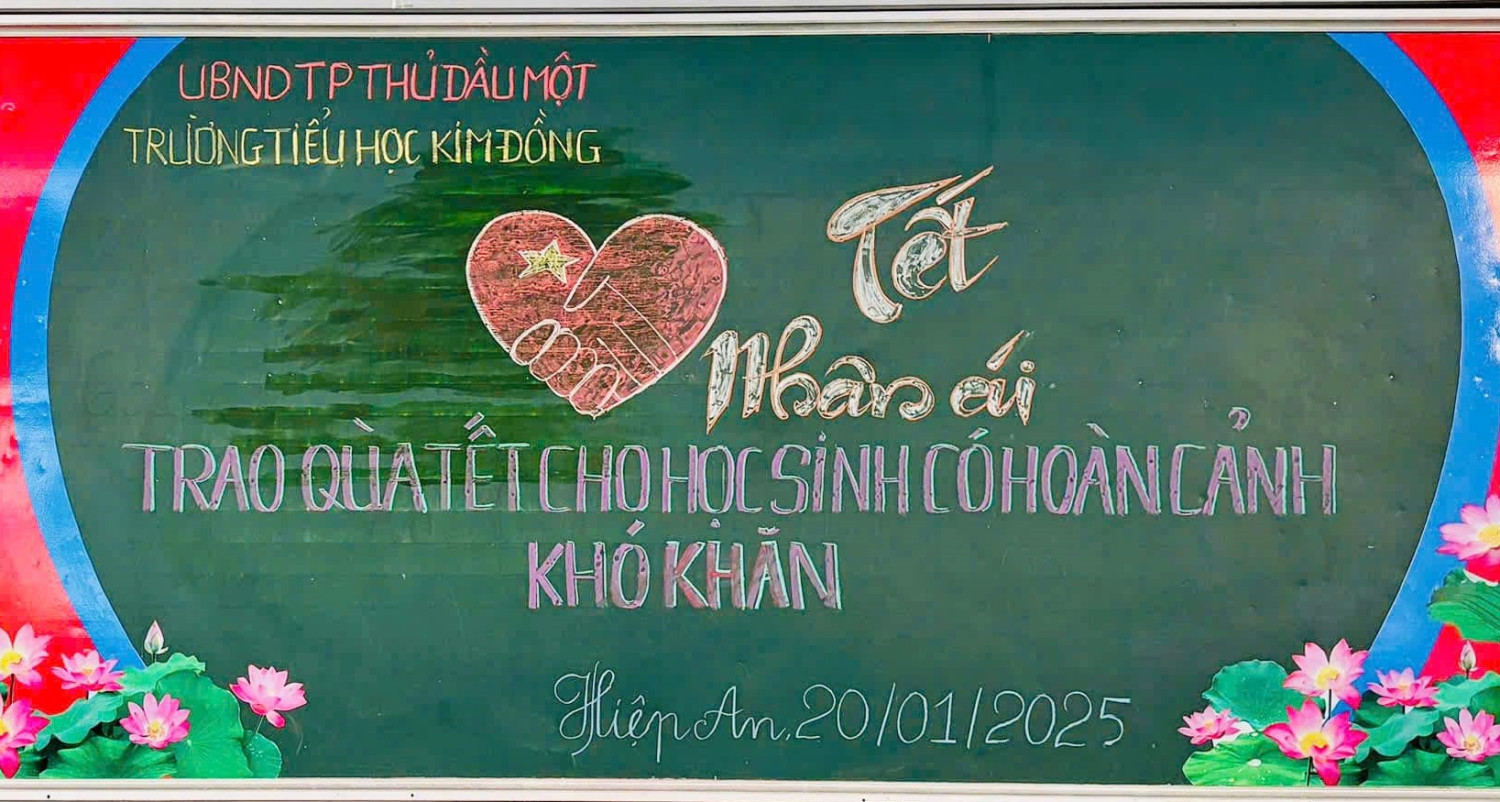 UBND TP THỦ DẦU MỘT
TRƯỜNG TIỂU HỌC KIM ĐỒNG
Tết
Nhân ái
TRAO QUÀ TẾT CHO HỌC SINH CÓ HOÀN CẢNH
KHÓ KHĂN
Hiệp An, 20/01/2025